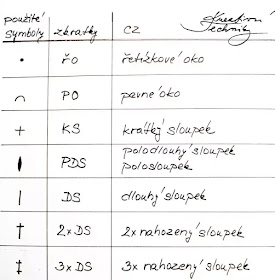 použité symboly zkratky CZ Kreativní Techniky
• řo řetízkové oko
⌒ PO pevné oko
+ KS krátký sloupek
PDS polodlouhý sloupek
polosloupek
| DS dlouhý sloupek
† 2xDS 2x nahozený sloupek
‡ 3xDS 3x nahozený sloupek